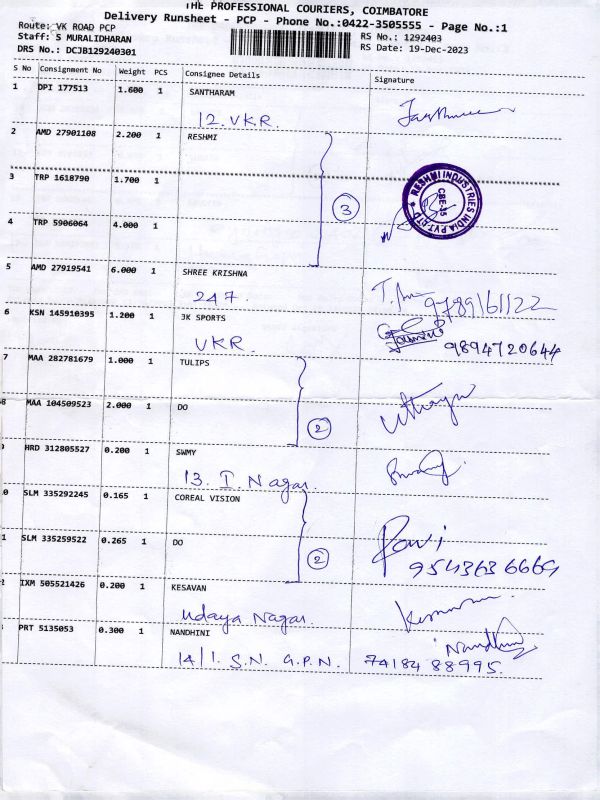 THE PROFESSIONAL COURIERS, COIMBATORE
Delivery Runsheet - PCP - Phone No.:0422-3505555 - Page No.:1
Route: VK ROAD PCP
Staff: S MURALIDHARAN
DRS No.: DCJB129240301
RS No.: 1292403
RS Date: 19-Dec-2023
S No Consignment No Weight PCS Consignee Details Signature
1 DPI 177513 1.600 1 SANTHARAM
12. VKR.
2 AMD 27901108 2.200 1 RESHMI
3 TRP 1618790 1.700 1
3
RESHMI INDUSTRIES INDIA PVT LTD
CBE-35
4 TRP 5906064 4.000 1
5 AMD 27919541 6.000 1 SHREE KRISHNA
247. 9789161122
6 KSN 145910395 1.200 1 JK SPORTS
VKR. 9894720644
7 MAA 282781679 1.000 1 TULIPS
8 MAA 104509523 2.000 1 DO
2
HRD 312805527 0.200 1 SWMY
13. I. Nagar.
0 SLM 335292245 0.165 1 COREAL VISION
1 SLM 335259522 0.265 1 DO
2
9543636669
IXM 505521426 0.200 1 KESAVAN
Udaya Nagar.
PRT 5135053 0.300 1 NANDHINI
Nandhini
14/1. S.N. G.P.N. 74184 88995.